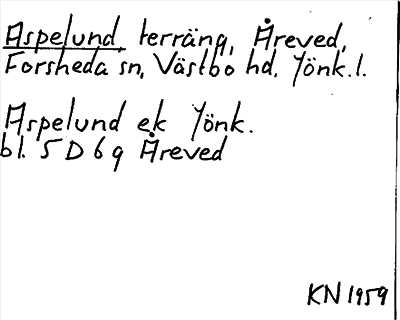 Aspelund, terräng, Åreved,
Forsheda sn, Västbo hd, Jönk. l.
Aspelund ek Jönk.
bl. 5 D 6 g Åreved
KN 1959